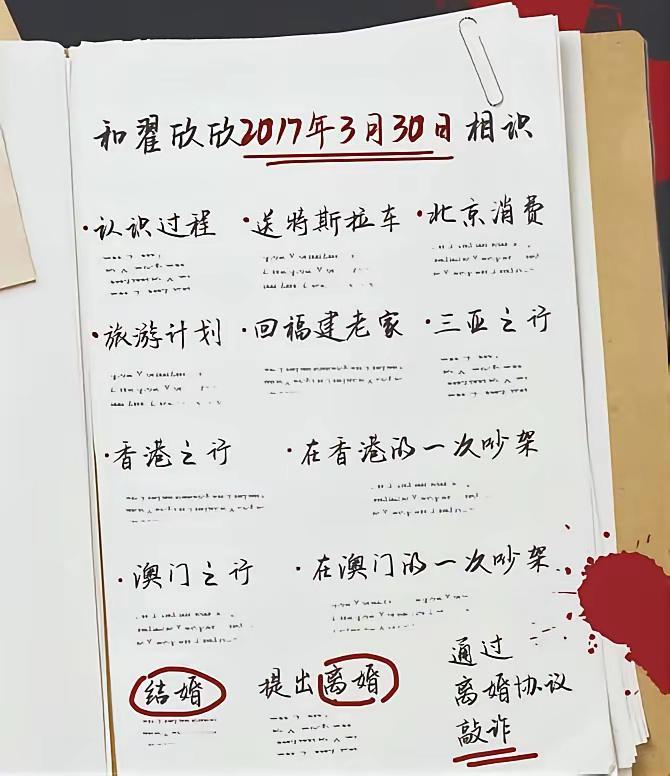 和翟欣欣2017年3月30日相识
·认识过程 ·送特斯拉车 ·北京消费
·旅游计划 ·回福建老家 ·三亚之行
·香港之行 ·在香港的一次吵架
·澳门之行 ·在澳门的一次吵架
结婚 提出离婚 通过
离婚协议
敲诈